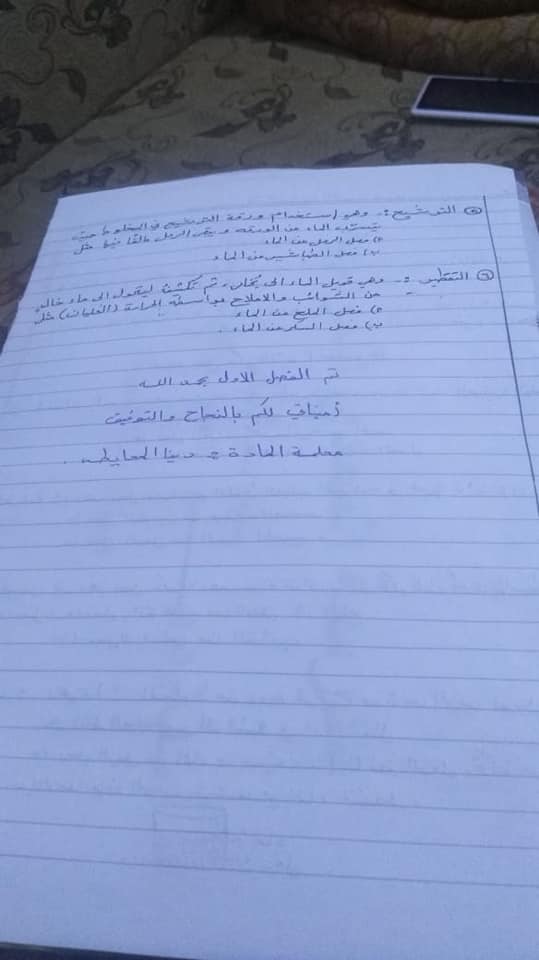 ٥ الترشيح :- وهو إستخدام ورقة الترشيح في المخلوط حيث
الماء من الورقه و يبقى الرمل عالقا فيها مثل
أ) فصل الرمل من الماء
ب) فصل الطباشير من الماء
٦ التقطير :- وهي تحويل الماء الى بخار، ثم تكثف ليتحول الى ماء خالي
من الشوائب والاملاح بواسطة الحرارة (الغليان) مثل
أ) فصل الملح من الماء
ب) فصل السكر من الماء .
تم الفصل الاول بحمد الله
أمنياتي لكم بالنجاح والتوفيق
معلمة المادة :- دينا المعايطه .